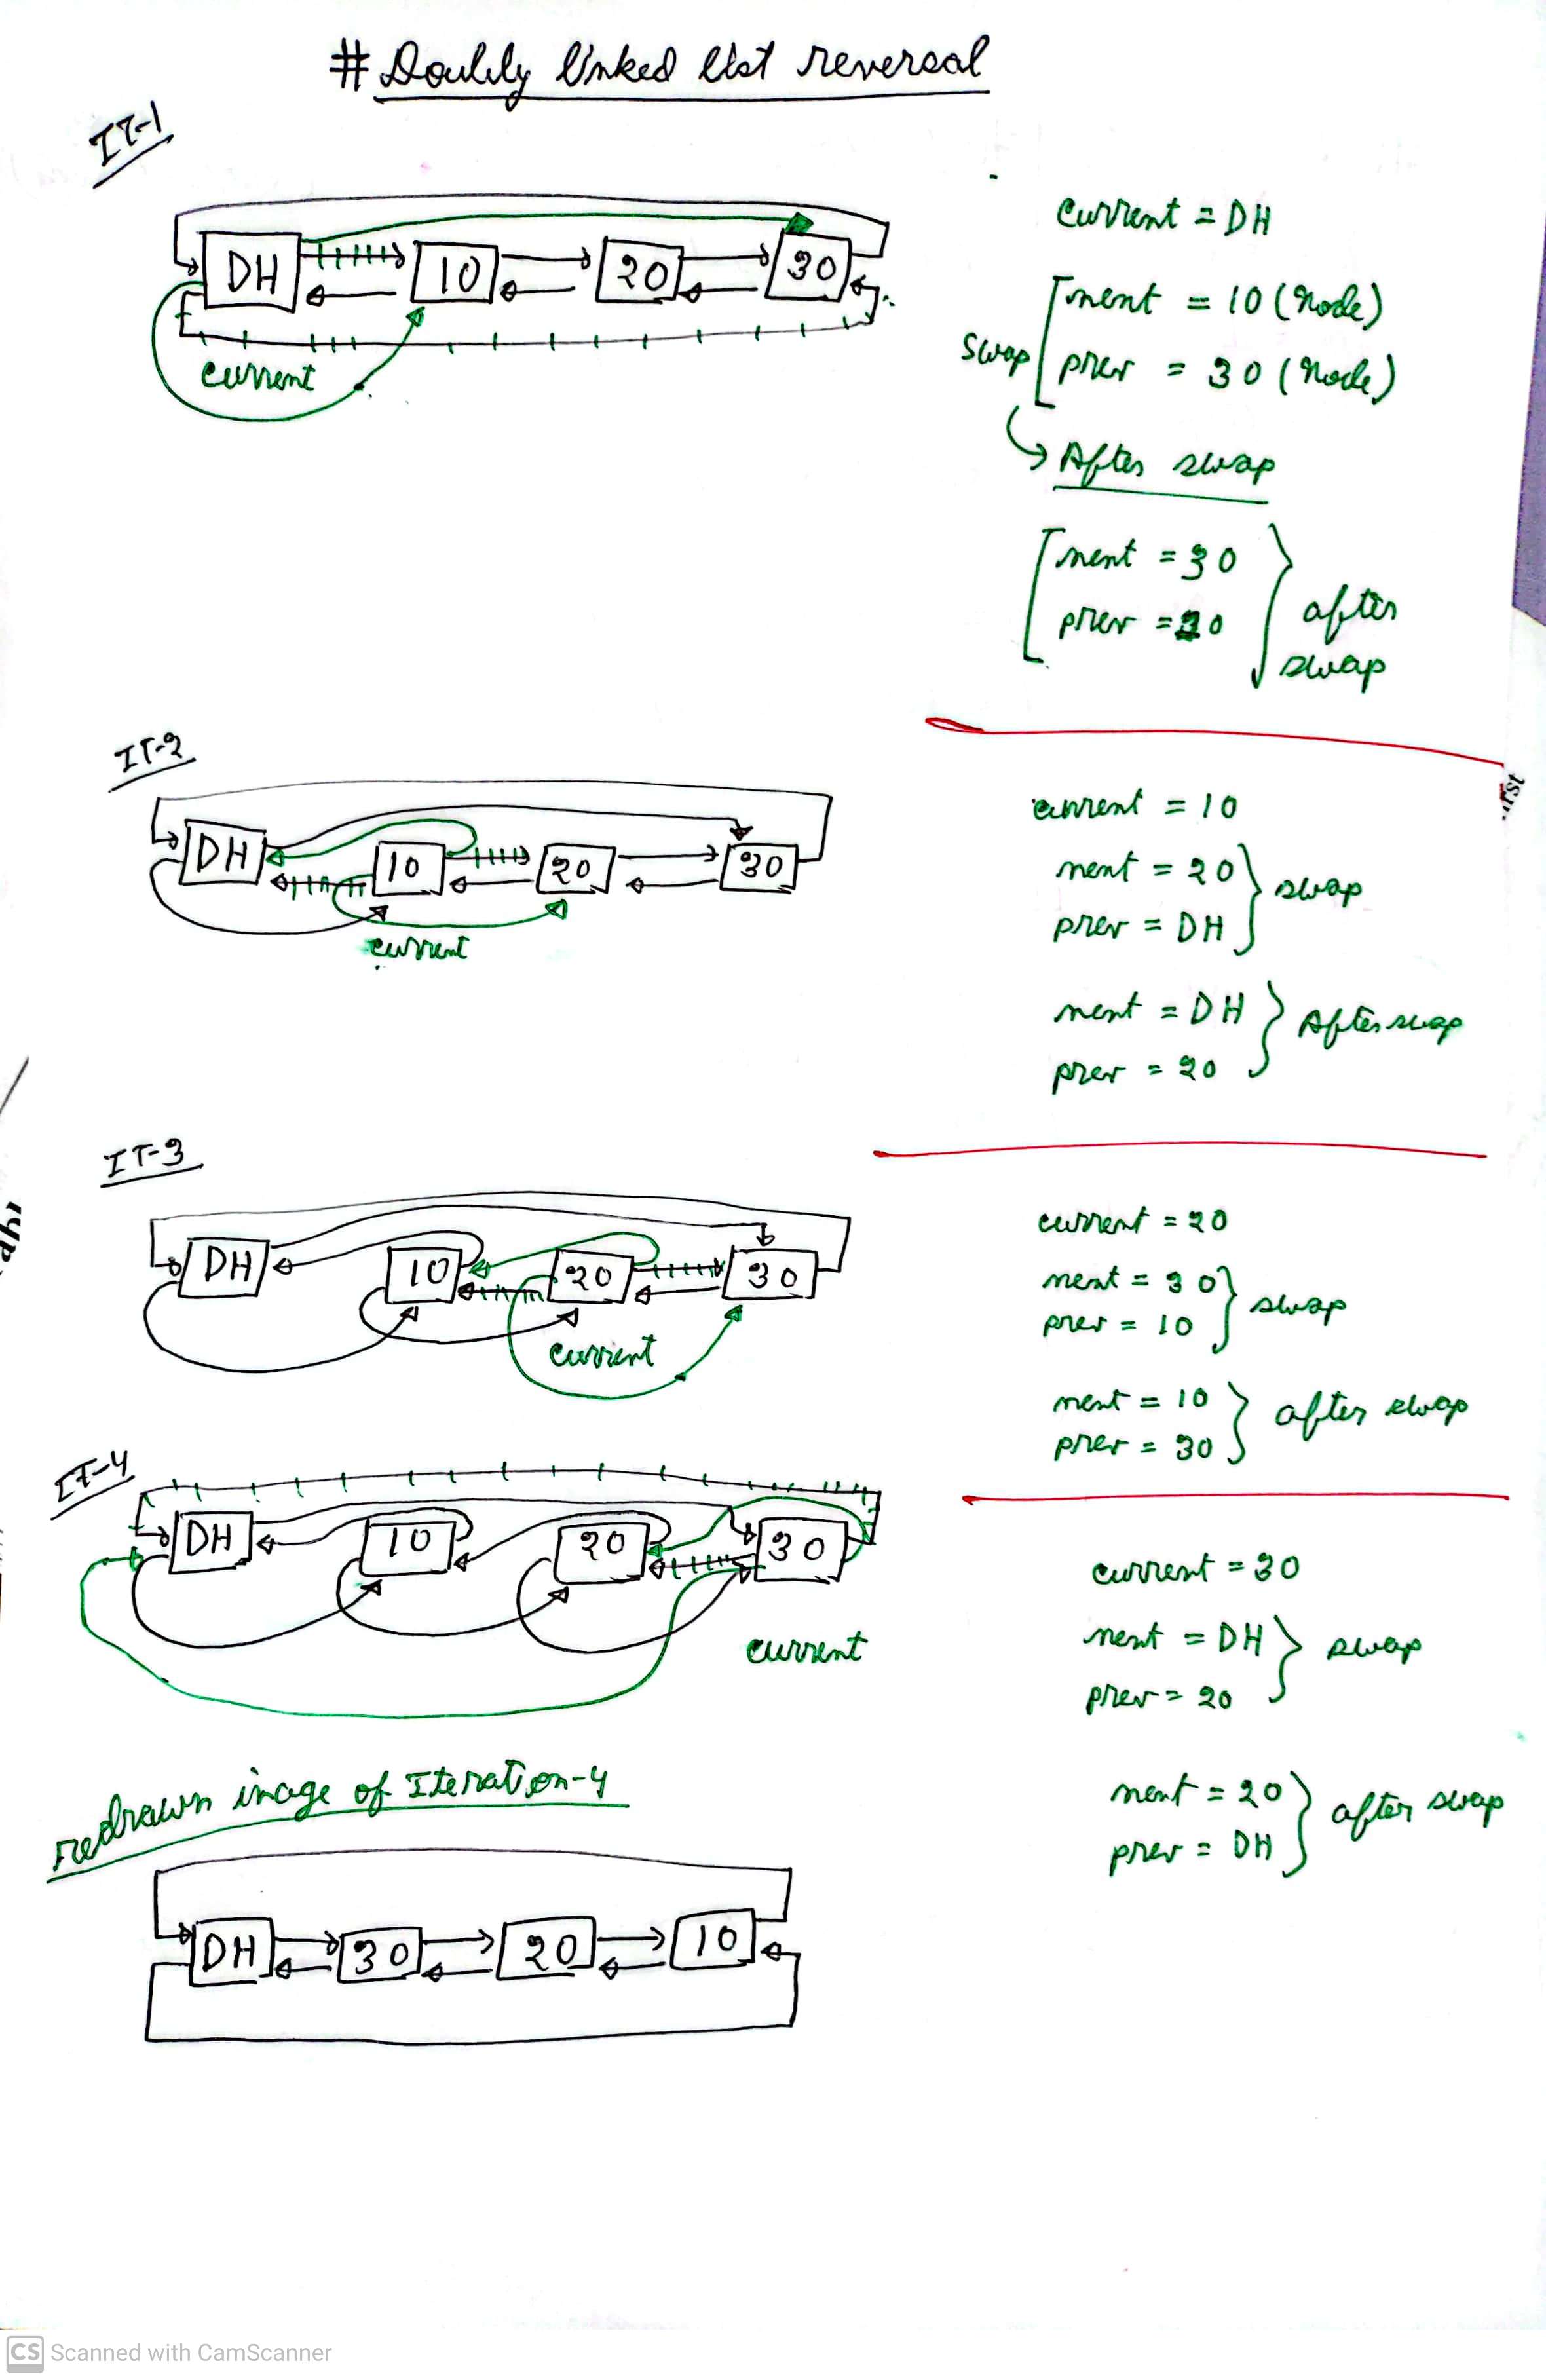 # Doubly linked list reversal
IT-1
DH 10 20 30
current
current = DH
next = 10 (Node)
swap
prev = 30 (Node)
After swap
next = 30
prev = 10
after
swap
IT-2
DH 10 20 30
current
current = 10
next = 20
swap
prev = DH
next = DH
After swap
prev = 20
IT-3
DH 10 20 30
current
current = 20
next = 30
swap
prev = 10
next = 10
after swap
prev = 30
IT-4
DH 10 20 30
current
current = 30
next = DH
swap
prev = 20
next = 20
after swap
prev = DH
redrawn image of Iteration-4
DH 30 20 10
CS Scanned with CamScanner